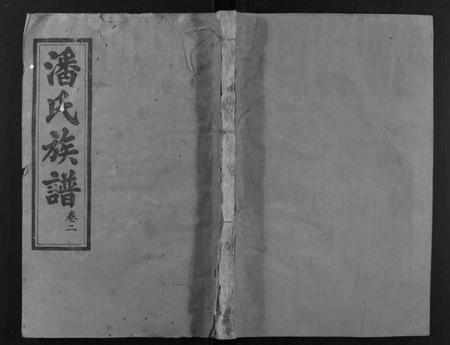 潘氏族譜
卷二